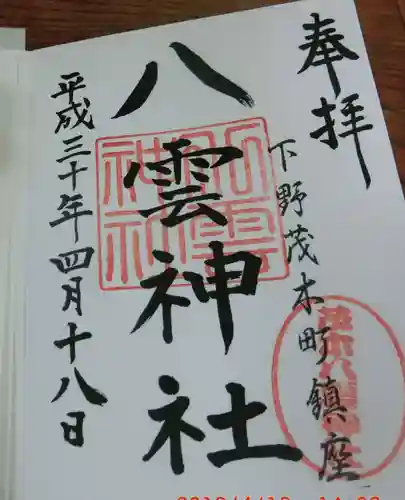 奉拝
下野茂木町鎮座
八雲神社
平成三十年四月十八日